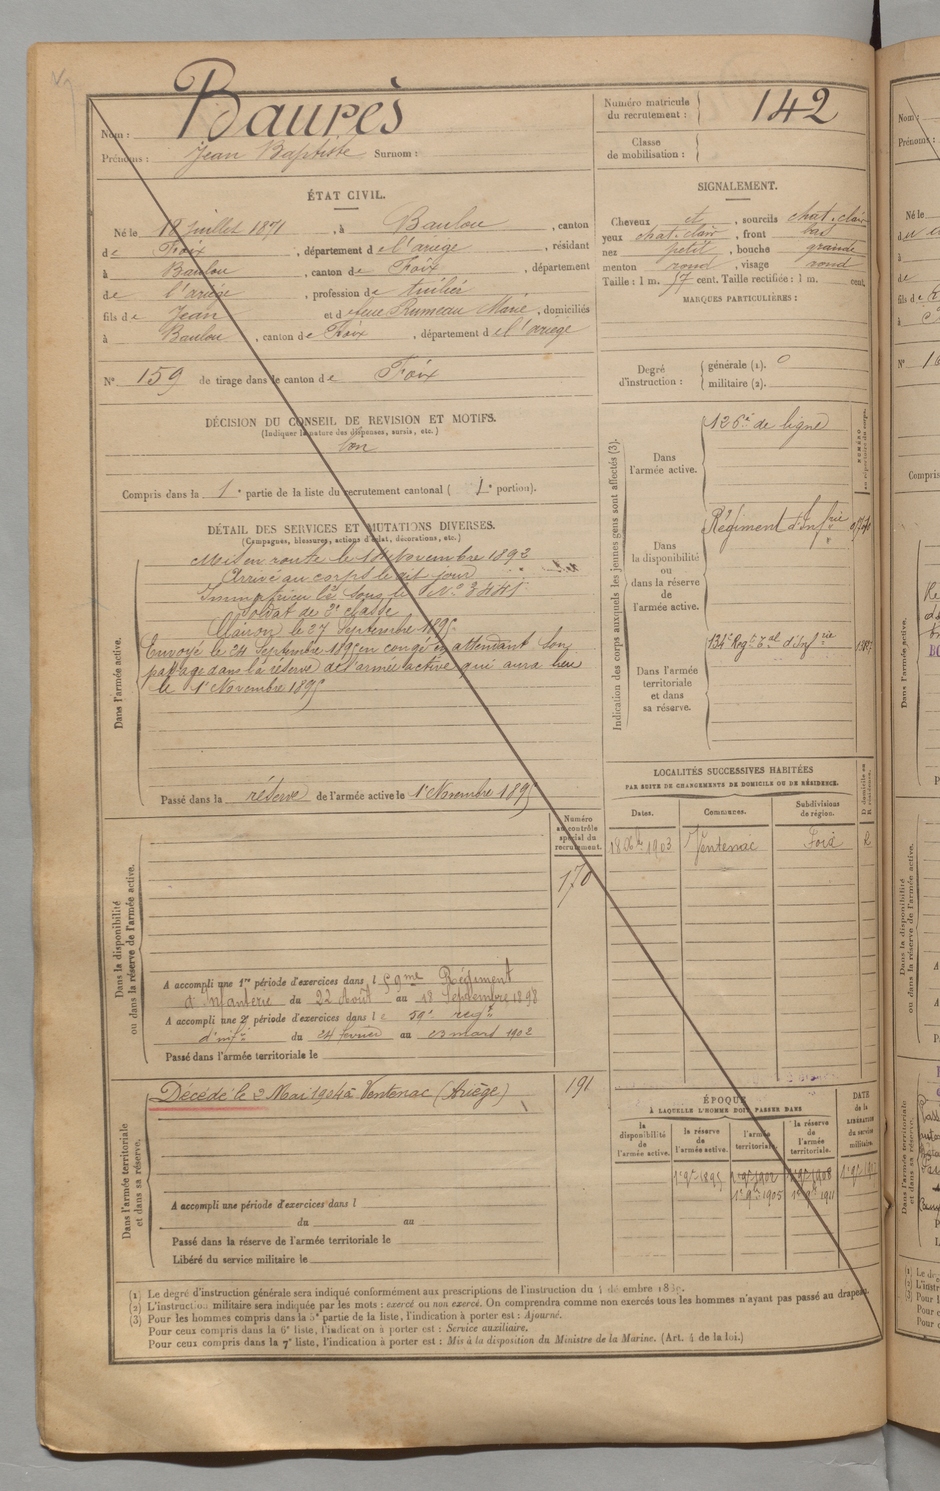 Nom : Baurès
Prénoms : Jean Baptiste Surnom :
Numéro matricule du recrutement : 142
Classe de mobilisation :
ÉTAT CIVIL.
Né le 18 juillet 1871, à Baulou, canton
de Foix, département de l'ariège, résidant
à Baulou, canton de Foix, département
de l'ariège, profession de tuilier
fils de Jean et de feue Rumeau Marie, domiciliés
à Baulou, canton de Foix, département de l'ariège
N° 159 de tirage dans le canton de Foix
SIGNALEMENT.
Cheveux et, sourcils chat. clair
yeux chat. clair, front bas
nez petit, bouche grande
menton rond, visage rond
Taille : 1 m. 57 cent. Taille rectifiée : 1 m. cent.
MARQUES PARTICULIÈRES :
Degré d'instruction : générale (1). 0
militaire (2).
DÉCISION DU CONSEIL DE REVISION ET MOTIFS.
(Indiquer la nature des dispenses, sursis, etc.)
bon
Compris dans la 1e partie de la liste du recrutement cantonal ( 1e portion).
DÉTAIL DES SERVICES ET MUTATIONS DIVERSES.
(Campagnes, blessures, actions d'éclat, décorations, etc.)
Dans l'armée active.
Mis en route le Novembre 1892
Arrivé au corps le dit jour
Immatriculé sous le N°
Soldat de 2e classe
Clairon le 27 Septembre 1895
Envoyé le 24 Septembre 1895 en congé en attendant son
passage dans la réserve de l'armée active qui aura lieu
le 1er Novembre 1895
Passé dans la réserve de l'armée active le 1er Novembre 1895
Indication des corps auxquels les jeunes gens sont affectés (3).
NUMÉRO au répertoire du corps.
Dans l'armée active.
126e de ligne
Dans la disponibilité ou dans la réserve de l'armée active.
Régiment d'Infrie
Dans l'armée territoriale et dans sa réserve.
134e Regt Tal d'Infrie
LOCALITÉS SUCCESSIVES HABITÉES
PAR SUITE DE CHANGEMENTS DE DOMICILE OU DE RÉSIDENCE.
Dates. Communes. Subdivisions de région. D domicile ou R résidence.
18 1903 Ventenac Foix
Numéro au contrôle spécial du recrutement.
170
Dans la disponibilité ou dans la réserve de l'armée active.
A accompli une 1re période d'exercices dans l 59me Régiment
d'Infanterie du 22 Août au 18 Septembre 1898
A accompli une 2e période d'exercices dans le 59e regt
d'inf du 24 fevrier au 23 mars 1902
Passé dans l'armée territoriale le
Dans l'armée territoriale et dans sa réserve.
Décédé le 2 Mai 1904 à Ventenac (Ariège) 191
A accompli une période d'exercices dans l
du au
Passé dans la réserve de l'armée territoriale le
Libéré du service militaire le
ÉPOQUE
A LAQUELLE L'HOMME DOIT PASSER DANS
la disponibilité de l'armée active. la réserve de l'armée active. l'armée territoriale. la réserve de l'armée territoriale. DATE de la LIBÉRATION du service militaire.
1er 9bre 1895 1er 9bre 1902 1er 9bre 1908
1er 9bre 1905 1er 9bre 1911
(1) Le degré d'instruction générale sera indiqué conformément aux prescriptions de l'instruction du 4 décembre
(2) L'instruction militaire sera indiquée par les mots : exercé ou non exercé. On comprendra comme non exercés tous les hommes n'ayant pas passé au drapeau.
(3) Pour les hommes compris dans la 5e partie de la liste, l'indication à porter est : Ajourné.
Pour ceux compris dans la 6e liste, l'indication à porter est : Service auxiliaire.
Pour ceux compris dans la 7e liste, l'indication à porter est : Mis à la disposition du Ministre de la Marine. (Art. 4 de la loi.)